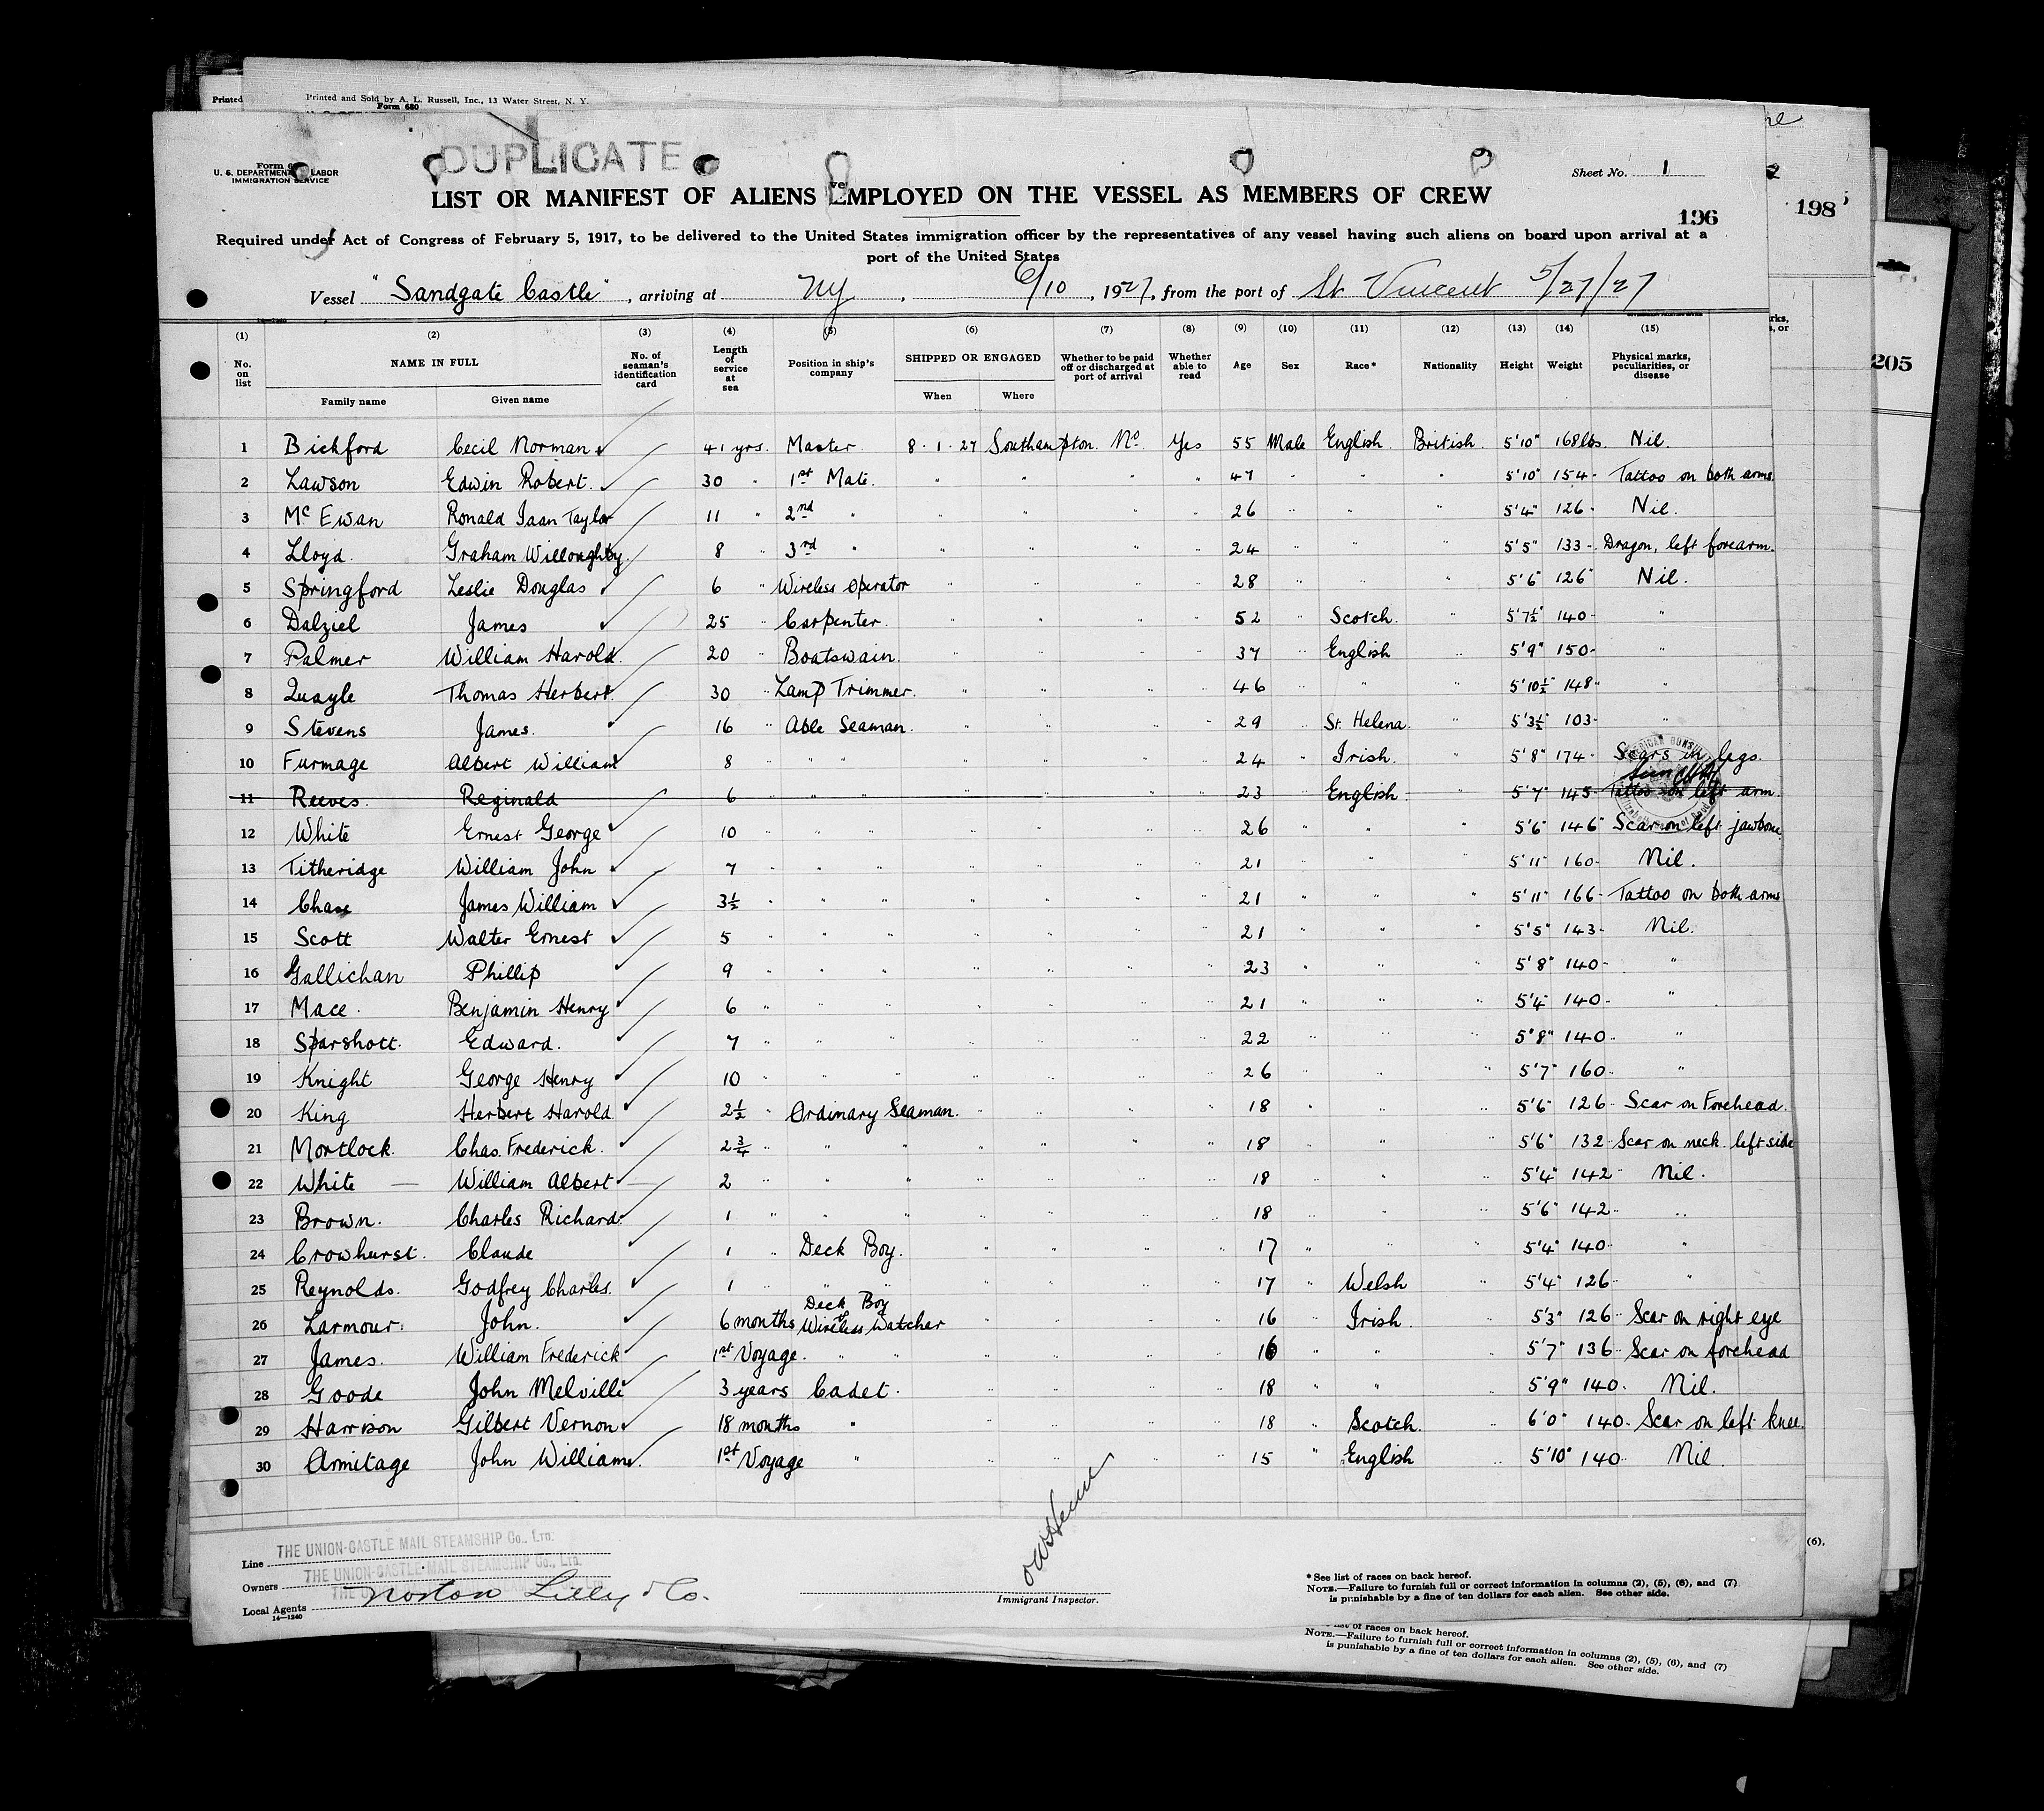 Printed
Printed and Sold by A. L. Russell, Inc., 13 Water Street, N. Y.
Form 680
DUPLICATE
Form
U. S. DEPARTMENT LABOR
IMMIGRATION SERVICE
Sheet No. 1
LIST OR MANIFEST OF ALIENS EMPLOYED ON THE VESSEL AS MEMBERS OF CREW
196
198
205
Required under Act of Congress of February 5, 1917, to be delivered to the United States immigration officer by the representatives of any vessel having such aliens on board upon arrival at a
port of the United States
Vessel "Sandgate Castle", arriving at NY, 6/10, 1927, from the port of St Vincent 5/27/27
(1) (2) (3) (4) (5) (6) (7) (8) (9) (10) (11) (12) (13) (14) (15)
No. on list NAME IN FULL No. of seaman's identification card Length of service at sea Position in ship's company SHIPPED OR ENGAGED Whether to be paid off or discharged at port of arrival Whether able to read Age Sex Race* Nationality Height Weight Physical marks, peculiarities, or disease
Family name Given name When Where
1 Bickford Cecil Norman 41 yrs. Master 8.1.27 Southampton. No Yes 55 Male English. British. 5'10" 168 lbs. Nil.
2 Lawson Edwin Robert. 30 " 1st Mate. " " " " 47 " " " 5'10" 154 " Tattoo on both arms.
3 Mc Ewan Ronald Iaan Taylor 11 " 2nd " " " " " 26 " " " 5'4" 126 " Nil.
4 Lloyd. Graham Willoughby. 8 " 3rd " " " " " 24 " " " 5'5" 133 " Dragon, left forearm.
5 Springford Leslie Douglas 6 " Wireless Operator " " " " 28 " " " 5'6" 126 " Nil.
6 Dalziel James 25 " Carpenter. " " " " 52 " Scotch. " 5'7½" 140 " "
7 Palmer William Harold. 20 " Boatswain. " " " " 37 " English " 5'9" 150 " "
8 Quayle Thomas Herbert. 30 " Lamp Trimmer. " " " " 46 " " " 5'10½" 148 " "
9 Stevens James. 16 " Able Seaman. " " " " 29 " St. Helena. " 5'3½" 103 " "
10 Furmage Albert William 8 " " " " " " " 24 " Irish. " 5'8" 174 " Scars in legs.
11 Reeves. Reginald 6 " " " " " " " 23 " English. " 5'7" 145 " Tattoo on left arm.
12 White Ernest George 10 " " " " " " " 26 " " " 5'6" 146 " Scar on left jawbone.
13 Titheridge William John 7 " " " " " " " 21 " " " 5'11" 160 " Nil.
14 Chase James William 3½ " " " " " " " 21 " " " 5'11" 166 " Tattoo on both arms
15 Scott Walter Ernest 5 " " " " " " " 21 " " " 5'5" 143 " Nil.
16 Gallichan Phillip 9 " " " " " " " 23 " " " 5'8" 140 " "
17 Mace. Benjamin Henry 6 " " " " " " " 21 " " " 5'4" 140 " "
18 Sparshott. Edward. 7 " " " " " " " 22 " " " 5'8" 140 " "
19 Knight George Henry 10 " " " " " " " 26 " " " 5'7" 160 " "
20 King Herbert Harold 2½ " Ordinary Seaman. " " " " 18 " " " 5'6" 126 " Scar on Forehead.
21 Mortlock. Chas. Frederick. 2¾ " " " " " " " 18 " " " 5'6" 132 " Scar on neck left side
22 White William Albert 2 " " " " " " " 18 " " " 5'4" 142 " Nil.
23 Brown. Charles Richard. 1 " " " " " " " 18 " " " 5'6" 142 " "
24 Crowhurst. Claude 1 " Deck Boy. " " " " 17 " " " 5'4" 140 " "
25 Reynolds. Godfrey Charles. 1 " " " " " " " 17 " Welsh " 5'4" 126 " "
26 Larmour. John. 6 months Deck Boy & Wireless Watcher " " " " 16 " Irish. " 5'3" 126 " Scar on right eye
27 James. William Frederick 1st Voyage. " " " " " " 16 " " " 5'7" 136 " Scar on forehead
28 Goode John Melville 3 years Cadet. " " " " 18 " " " 5'9" 140 " Nil.
29 Harrison Gilbert Vernon 18 months " " " " " 18 " Scotch. " 6'0" 140 " Scar on left knee.
30 Armitage John William. 1st Voyage " " " " " 15 " English " 5'10" 140 " Nil.
Line THE UNION-CASTLE MAIL STEAMSHIP Co., Ltd.
Owners THE UNION-CASTLE MAIL STEAMSHIP Co., Ltd.
Local Agents Norton Lilly & Co.
14—1240
Immigrant Inspector.
*See list of races on back hereof.
NOTE.—Failure to furnish full or correct information in columns (2), (5), (6), and (7)
is punishable by a fine of ten dollars for each alien. See other side.
(6),
list of races on back hereof.
NOTE.—Failure to furnish full or correct information in columns (2), (5), (6), and (7)
is punishable by a fine of ten dollars for each alien. See other side.